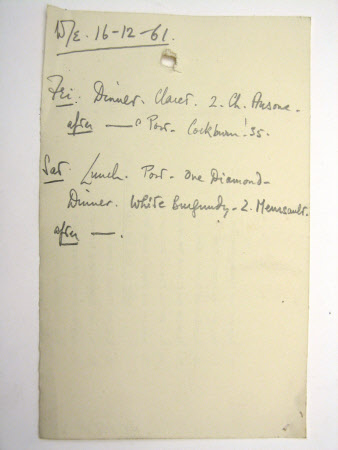 W/E. 16-12-61.
Fri: Dinner. Claret. 2. Ch. Ausone.
after — " Port. Cockburn '35.
Sat. Lunch. Port. One Diamond.
Dinner. White Burgundy. 2. Meursault.
after — .